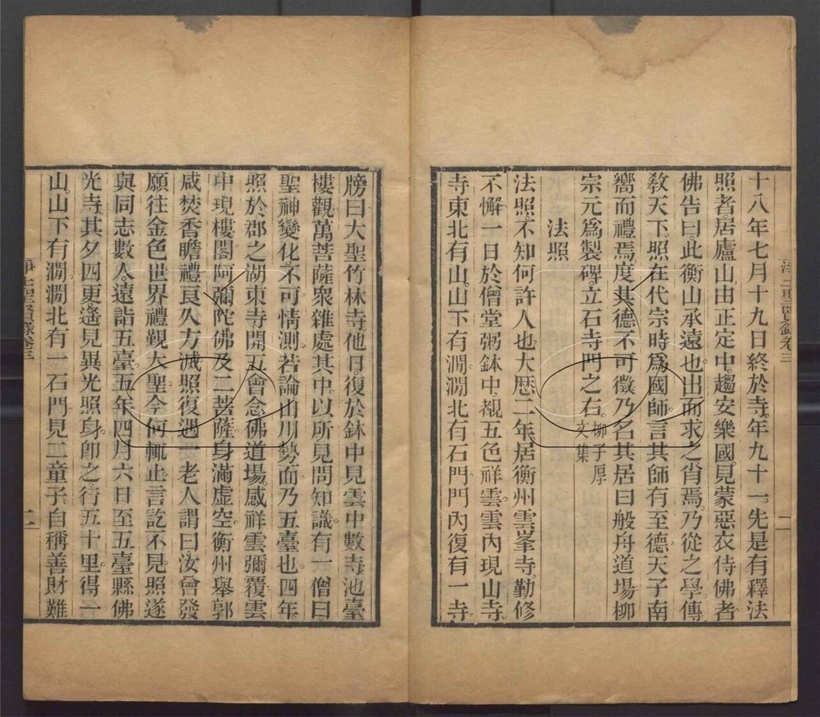 十八年七月十九日終於寺年九十一先是有釋法
照者居廬山由正定中趨安樂國見蒙惡衣侍佛者
佛告曰此衡山承遠也出而求之肖焉乃從之學傳
敎天下照在代宗時爲國師言其師有至德天子南
嚮而禮焉度其德不可徵乃名其居曰般舟道場柳
宗元爲製碑立石寺門之右柳子厚文集
法照
法照不知何許人也大厯二年居衡州雲峯寺勤修
不懈一日於僧堂粥鉢中覩五色祥雲雲內現山寺
寺東北有山山下有澗澗北有石門門內復有一寺
牓曰大聖竹林寺他日復於鉢中見雲中數寺池臺
樓觀萬菩薩衆雜處其中以所見問知識有一僧曰
聖神變化不可情測若論山川勢面乃五臺也四年
照於郡之湖東寺開五會念佛道場感祥雲彌覆雲
中現樓閣阿彌陀佛及二菩薩身滿虛空衡州舉郭
咸焚香瞻禮良久方滅照復遇一老人謂曰汝曾發
願往金色世界禮覲大聖今何輒止言訖不見照遂
與同志數人遠詣五臺五年四月六日至五臺縣佛
光寺其夕四更遙見異光照身卽之行五十里得一
山山下有澗澗北有一石門見二童子自稱善財難